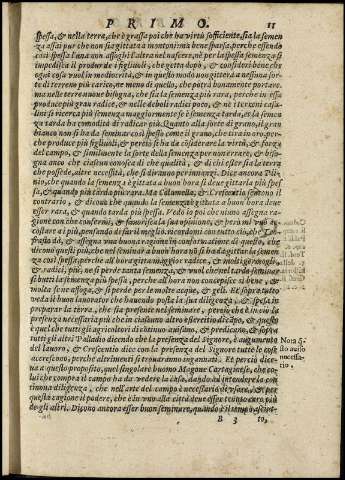 PRIMO. 11
spessa, & nella terra, che è grassa poi che ha virtù sofficiente, sia la semen
za assai pur che non sia gittata a montoni ma bene sparsa, perche essendo
così spessa l'una non affoghi l'altra nel nascere, nè per la spessa semenza si
impedisca il produr de i figliuoli, che getta dopo, & consideri bene che
ogni cosa vuol in mediocrità, & in questo modo non gitterà a nessuna sorte
di terren più carico, ne meno di quello, che potrà bonamente portare.
ma nelle terre buone bisogna, che sia la semenza più rara, perche in esse
produce più gran radice, & nelle deboli radici poco, & nè i terreni casa-
lini se ricerca più semenza & maggiormente se è semenza tarda, & la semen
za tarda ha comodità di radicar più. Quanto alla sorte di grano, il gran
bianco non si ha da seminar così spesso come il grano, che tira in oro, per-
che produce più figliuoli, & perciò si ha da considerar la virtù, & forza
del campo, & similmente la sorte della semenza per non errare, & biso-
gna anco che ciascun conosca di che qualità, & di chi esser sia la terra
che possede, altre necessità, che si diranno per innanzi. Dice ancora Pli-
nio, che quando la semenza è gittata a buon hora si deue gittarla più spes-
sa, & quando più tarda rara. Ma Columella, & Crescentio tengono il
contrario, & dicono che quando la semenza è gittata a buon hora deue
esser rara, & quando tarda più spessa. Vedo io poi che niuno assigna ra-
gione con che confermi, & fauorisca la sua opinione, & però mi vuò ac-
costare a i più, pensando di far il meglio. ricordomi con tutto ciò, che Teo-
frasto dà, & assegna vna buona ragione in confirmatione di questo, che
dicono questi più che nel seminar a buon'hora nò si ha da gittar la semen
za così spessa, perche all'hora gitta maggior radice, & molti germogli,
& radici, più, ne si perde tanta semenza, & vuol che nel tardo seminar
si butti la semenza più spessa, perche all'hora non concepisce si bene, &
molta se ne affoga, & si perde per le molte acque, & geli. Et sopra tutto
veda il buon lauorator che hauendo posta la sua diligenza, & spesa in
preparar la terra, che sia presente nel seminare, però che è in ciò la
presenza necessaria più che in ciascun altro esercitio di cäpo, & questo
è quel che tutti gli agricoltori di cötinuo auisano, & predicano, & sopra
tutti gli altri Palladio dicendo che la presenza del Signore, è augumento
del lauoro, & Crescentio dice con la presenza del Signore tutte le cose
accrescono, perche altrimenti si trouaranno ingannati. Et perciò dice-
ua a questo proposito, quel singolar huomo Magone Cartaginese, che co-
lui che compra il campo ha da vedere la casa, dando ad intendere la con-
tinua diligenza, che nell'arte del campo è necessaria di vsare, & per
questa cagione il podere, che è in vna città deue esser tenuto caro più
de gli altri. Dicono ancora esser buon seminare, quando è il tempo asciut-
B 3 to,
Nota q̃
sto auiso
necessa-
rio.